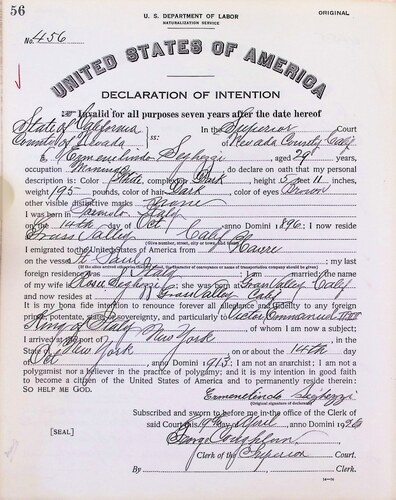 56
U. S. DEPARTMENT OF LABOR
NATURALIZATION SERVICE
ORIGINAL
No. 456
UNITED STATES OF AMERICA
DECLARATION OF INTENTION
Invalid for all purposes seven years after the date hereof
State of California
In the Superior Court
County of Nevada
ss:
of Nevada County Calif
I, Ermenelindo Seghezzi, aged 29 years,
occupation Mining, do declare on oath that my personal
description is: Color White, complexion Dark, height 5 feet 11 inches,
weight 195 pounds, color of hair Dark, color of eyes Brown
other visible distinctive marks None
I was born in Italy
on the 14th day of Oct, anno Domini 1896; I now reside
at Grass Valley Calif
(Give number, street, city or town, and State.)
I emigrated to the United States of America from Havre
on the vessel St Paul; my last
(If the alien arrived otherwise than by vessel, the character of conveyance or name of transportation company should be given.)
foreign residence was Italy; I am married; the name
of my wife is Rose Seghezzi; she was born at Grass Valley Calif
and now resides at Grass Valley Calif
It is my bona fide intention to renounce forever all allegiance and fidelity to any foreign
prince, potentate, state, or sovereignty, and particularly to Victor Emmanuel III
King of Italy, of whom I am now a subject;
I arrived at the port of New York, in the
State of New York, on or about the 14th day
Oct, anno Domini 1913; I am not an anarchist; I am not a
polygamist nor a believer in the practice of polygamy; and it is my intention in good faith
to become a citizen of the United States of America and to permanently reside therein:
SO HELP ME GOD.
Ermenelindo Seghezzi
(Original signature of declarant.)
Subscribed and sworn to before me in the office of the Clerk of
said Court this 19th day April, anno Domini 1926
[SEAL]
Clerk of the Superior Court.
By, Clerk.